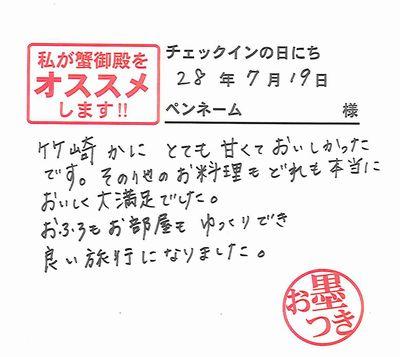 私が蟹御殿を
オススメ
します!!
チェックインの日にち
28年7月19日
ペンネーム 様
竹崎かに とても甘くておいしかった
です。その他のお料理もどれも本当に
おいしく大満足でした。
おふろもお部屋も ゆっくりでき
良い旅行になりました。
お墨つき